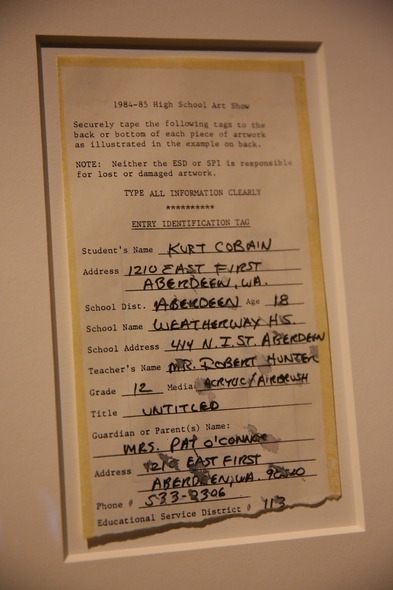 1984-85 High School Art Show
Securely tape the following tags to the
back or bottom of each piece of artwork
as illustrated in the example on back.
NOTE: Neither the ESD or SPI is responsible
for lost or damaged artwork.
TYPE ALL INFORMATION CLEARLY
**********
ENTRY IDENTIFICATION TAG
Student's Name KURT COBAIN
Address 1210 EAST FIRST
ABERDEEN, WA.
School Dist. ABERDEEN Age 18
School Name WEATHERWAX H.S.
School Address 414 N. I. ST. ABERDEEN
Teacher's Name MR. ROBERT HUNTER
Grade 12 Media ACRYLIC/AIRBRUSH
Title UNTITLED
Guardian or Parent(s) Name:
MRS. PAT O'CONNOR
Address 1210 EAST FIRST
ABERDEEN, WA.
Phone # 533-2306
Educational Service District # 113